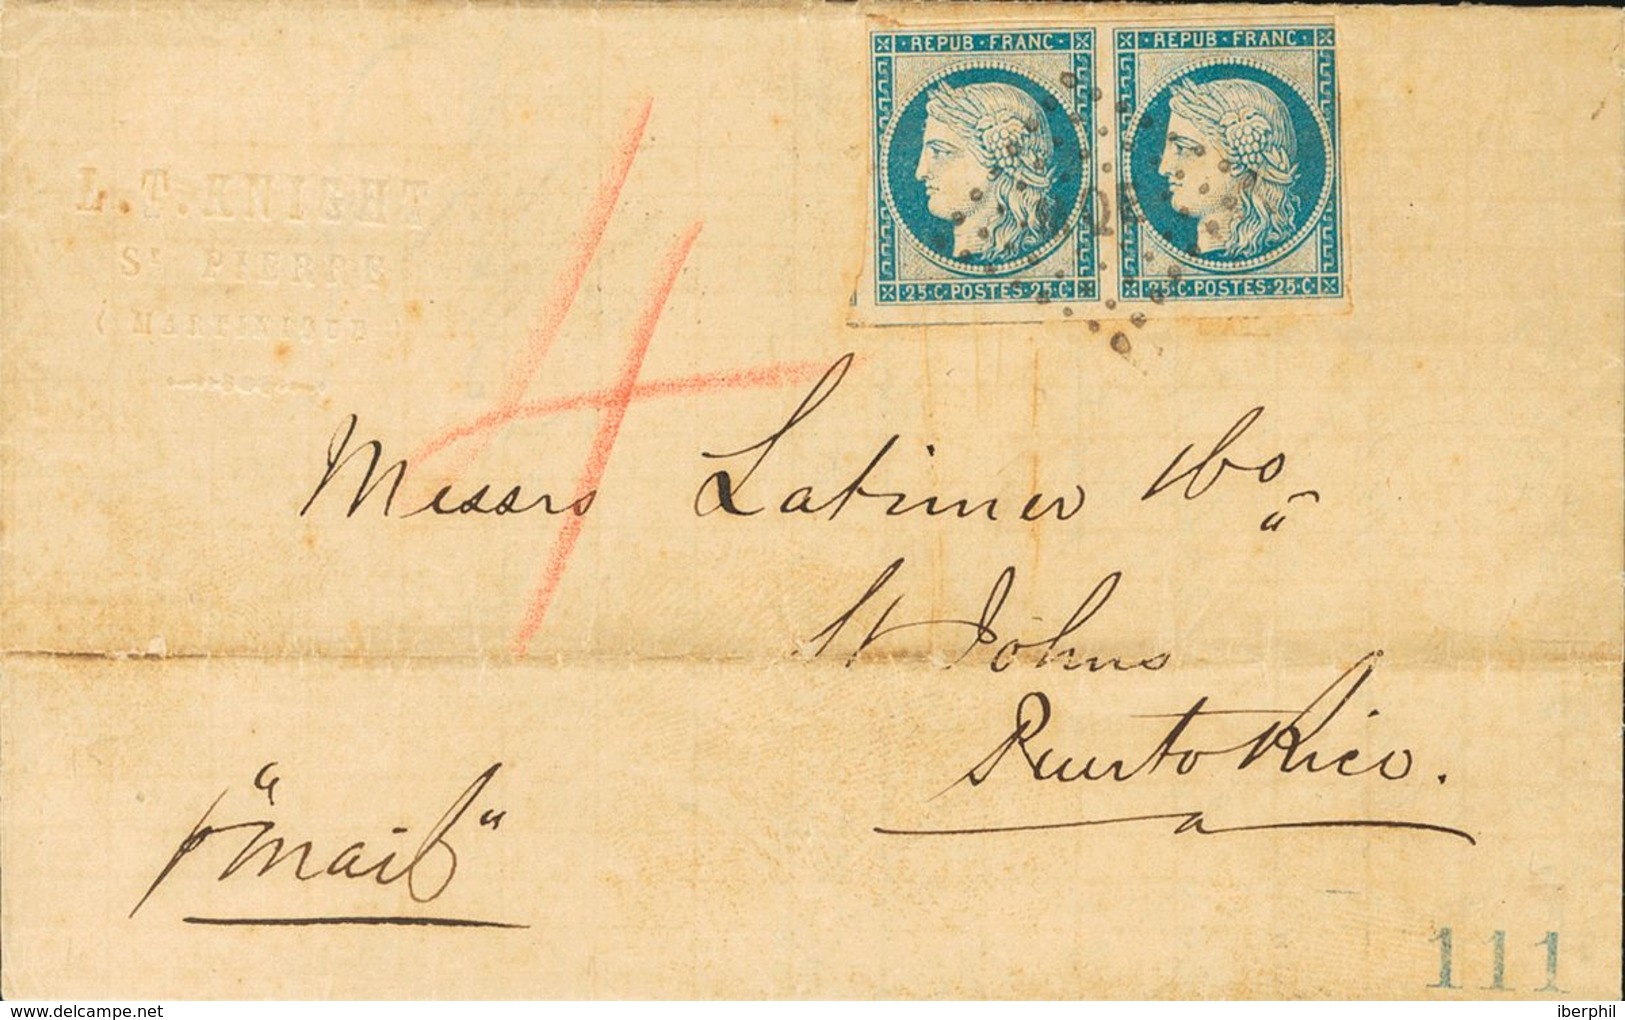 REPUB·FRANC· REPUB·FRANC·
25·C·POSTES·25·C· 25·C·POSTES·25·C·
L.T.KNIGHT
St PIERRE
(MARTINIQUE)
4
Messrs Latimer & Co
St Johns
Puerto Rico.
p "mail"
111
iberphil